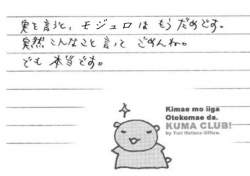 実を言うと、モジュロは もう だめです。
突然こんなこと言って ごめんね。
でも 本当です。
Kimae mo iiga
Otokomae da.
KUMA CLUB!